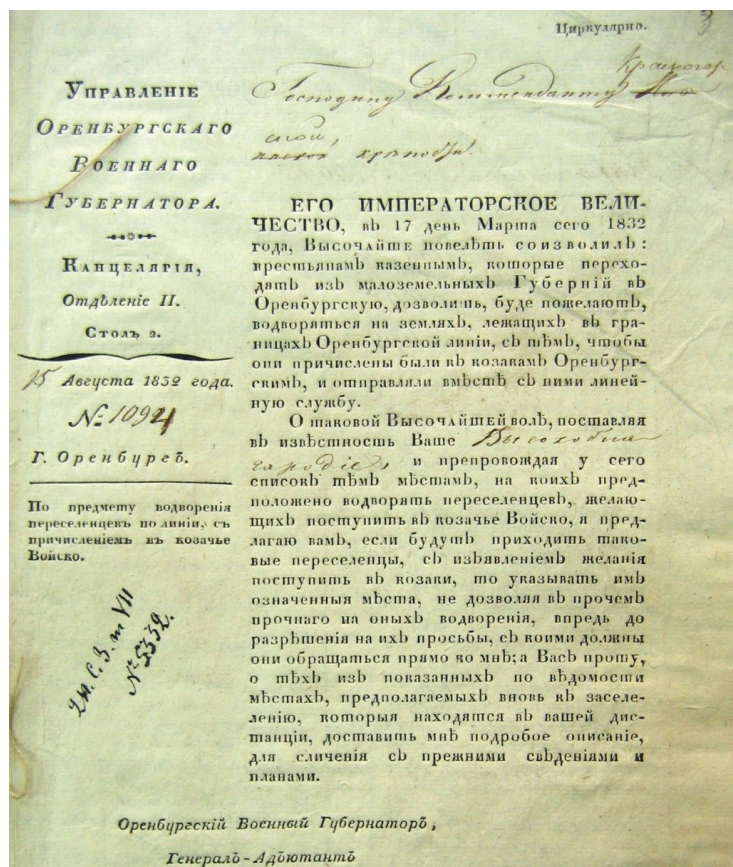 Циркулярно.
3
УПРАВЛЕНІЕ
ОРЕНБУРГСКАГО
ВОЕННАГО
ГУБЕРНАТОРА.
КАНЦЕЛЯРІЯ,
Отдѣленіе II.
СТОЛЪ 2.
15 Августа 1832 года.
№ 1094
Г. Оренбургъ.
По предмету водворенія
переселенцевъ по линіи, съ
причисленіемъ въ козачье
Войско.
2 п. С. З. т VII
№ 5332.
Господину Коменданту Красногор
ской,
крѣпости.
ЕГО ИМПЕРАТОРСКОЕ ВЕЛИ-
ЧЕСТВО, въ 17 день Марта сего 1832
года, ВЫСОЧАЙШЕ повелѣть соизволилъ:
крестьянамъ казеннымъ, которые перехо-
дятъ изъ малоземельныхъ Губерній въ
Оренбургскую, дозволить, буде пожелаютъ,
водворяться на земляхъ, лежащихъ въ гра-
ницахъ Оренбургской линіи, съ тѣмъ, чтобы
они причислены были къ козакамъ Оренбург-
скимъ, и отправляли вмѣстѣ съ ними линей-
ную службу.
О таковой ВЫСОЧАЙШЕЙ волѣ, поставляя
въ извѣстность Ваше Высокобла
городіе, и препровождая у сего
списокъ тѣмъ мѣстамъ, на коихъ пред-
положено водворять переселенцевъ, желаю-
щихъ поступить въ козачье Войско, я пред-
лагаю вамъ, если будутъ приходить тако-
вые переселенцы, съ изъявленіемъ желанія
поступить въ козаки, то указывать имъ
означенныя мѣста, не дозволяя въ прочемъ
прочнаго на оныхъ водворенія, впредь до
разрѣшенія на ихъ просьбы, съ коими должны
они обращаться прямо ко мнѣ; а Васъ прошу,
о тѣхъ изъ показанныхъ по вѣдомости
мѣстахъ, предполагаемыхъ вновь къ заселе-
ленію, которыя находятся въ вашей дис-
танціи, доставить мнѣ подробое описаніе,
для сличенія съ прежними свѣденіями и
планами.
Оренбургскій Военный Губернаторъ,
Генералъ-Адъютантъ